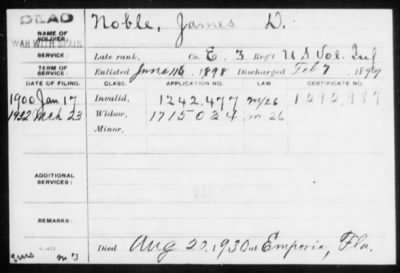 DEAD
NAME OF SOLDIER: Noble, James D.
WAR WITH SPAIN
SERVICE: Late rank, Co. E. 3 Reg't U S Vol. Inf
TERM OF SERVICE: Enlisted June 16, 1898 Discharged Feb 7, 1899
DATE OF FILING. CLASS. APPLICATION NO. LAW. CERTIFICATE NO.
1900 Jan 17 Invalid, 1242,477 m/26
1932 Mch 23 Widow, 1715034 m 26
Minor,
ADDITIONAL SERVICES:
REMARKS:
Died Aug 20, 1930 at Emporia, Fla.